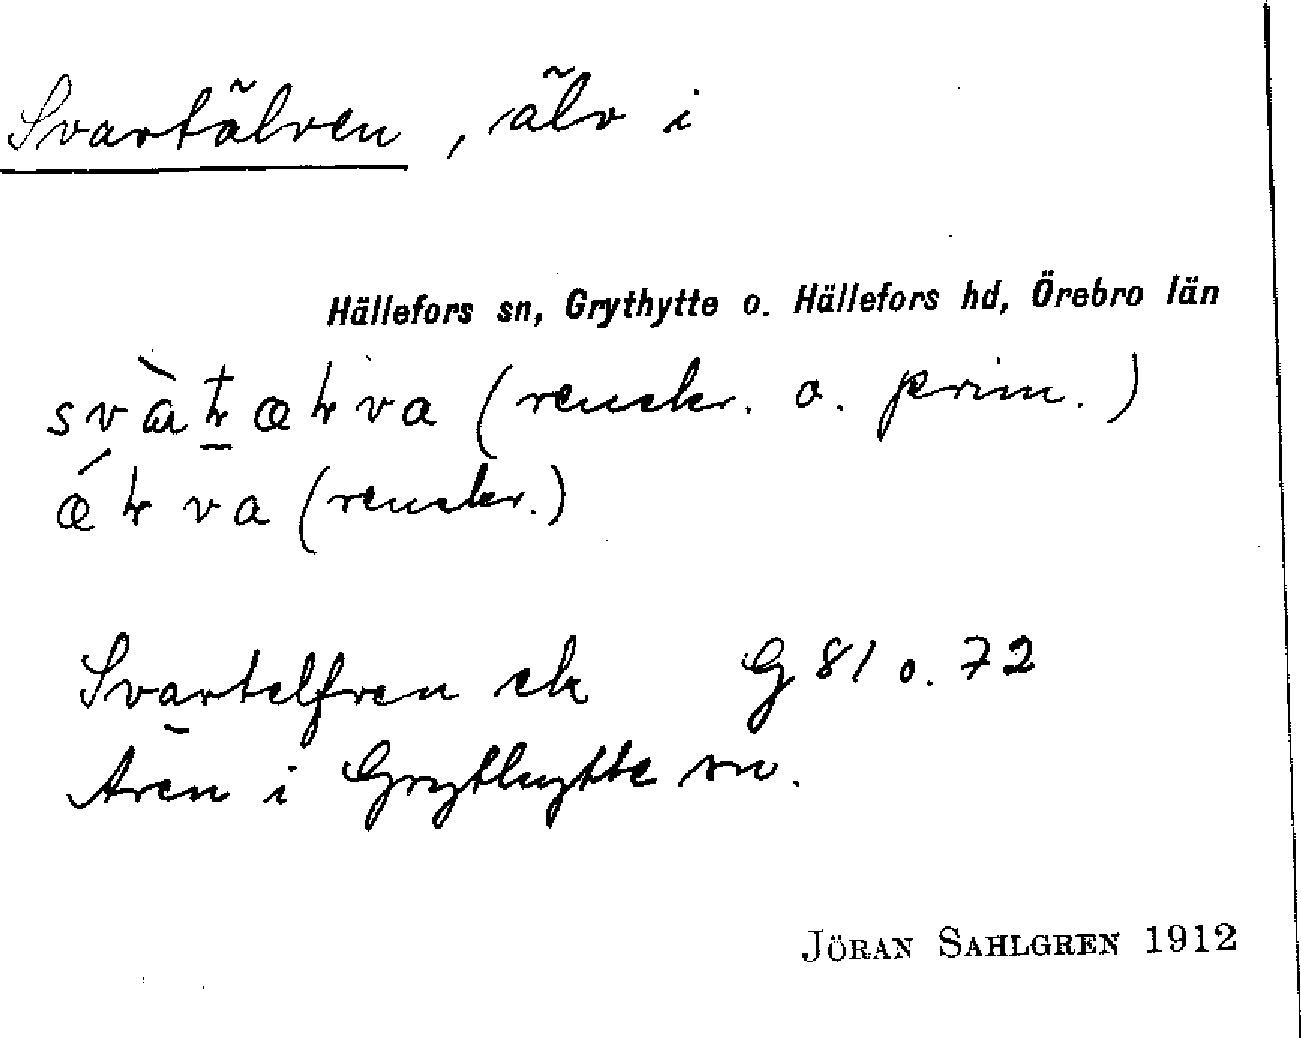 Svartälven, älv i
Hällefors sn, Grythytte o. Hällefors hd, Örebro län
(renskr. o. prim.)
(renskr.)
Svartelfven ek G 81 o. 72
Aven i Grythytte sn.
JÖRAN SAHLGREN 1912